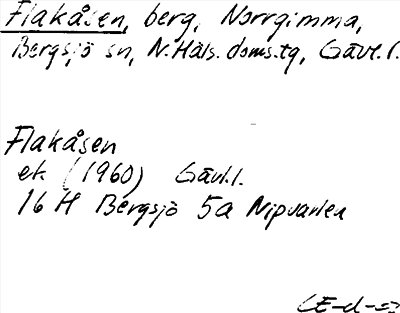 Flakåsen, berg, Norrgimma,
Bergsjö sn, N.Häls.doms.tg, Gävl.l.
Flakåsen
ek (1960) Gävl.l.
16 H Bergsjö 5a Nipvarlen